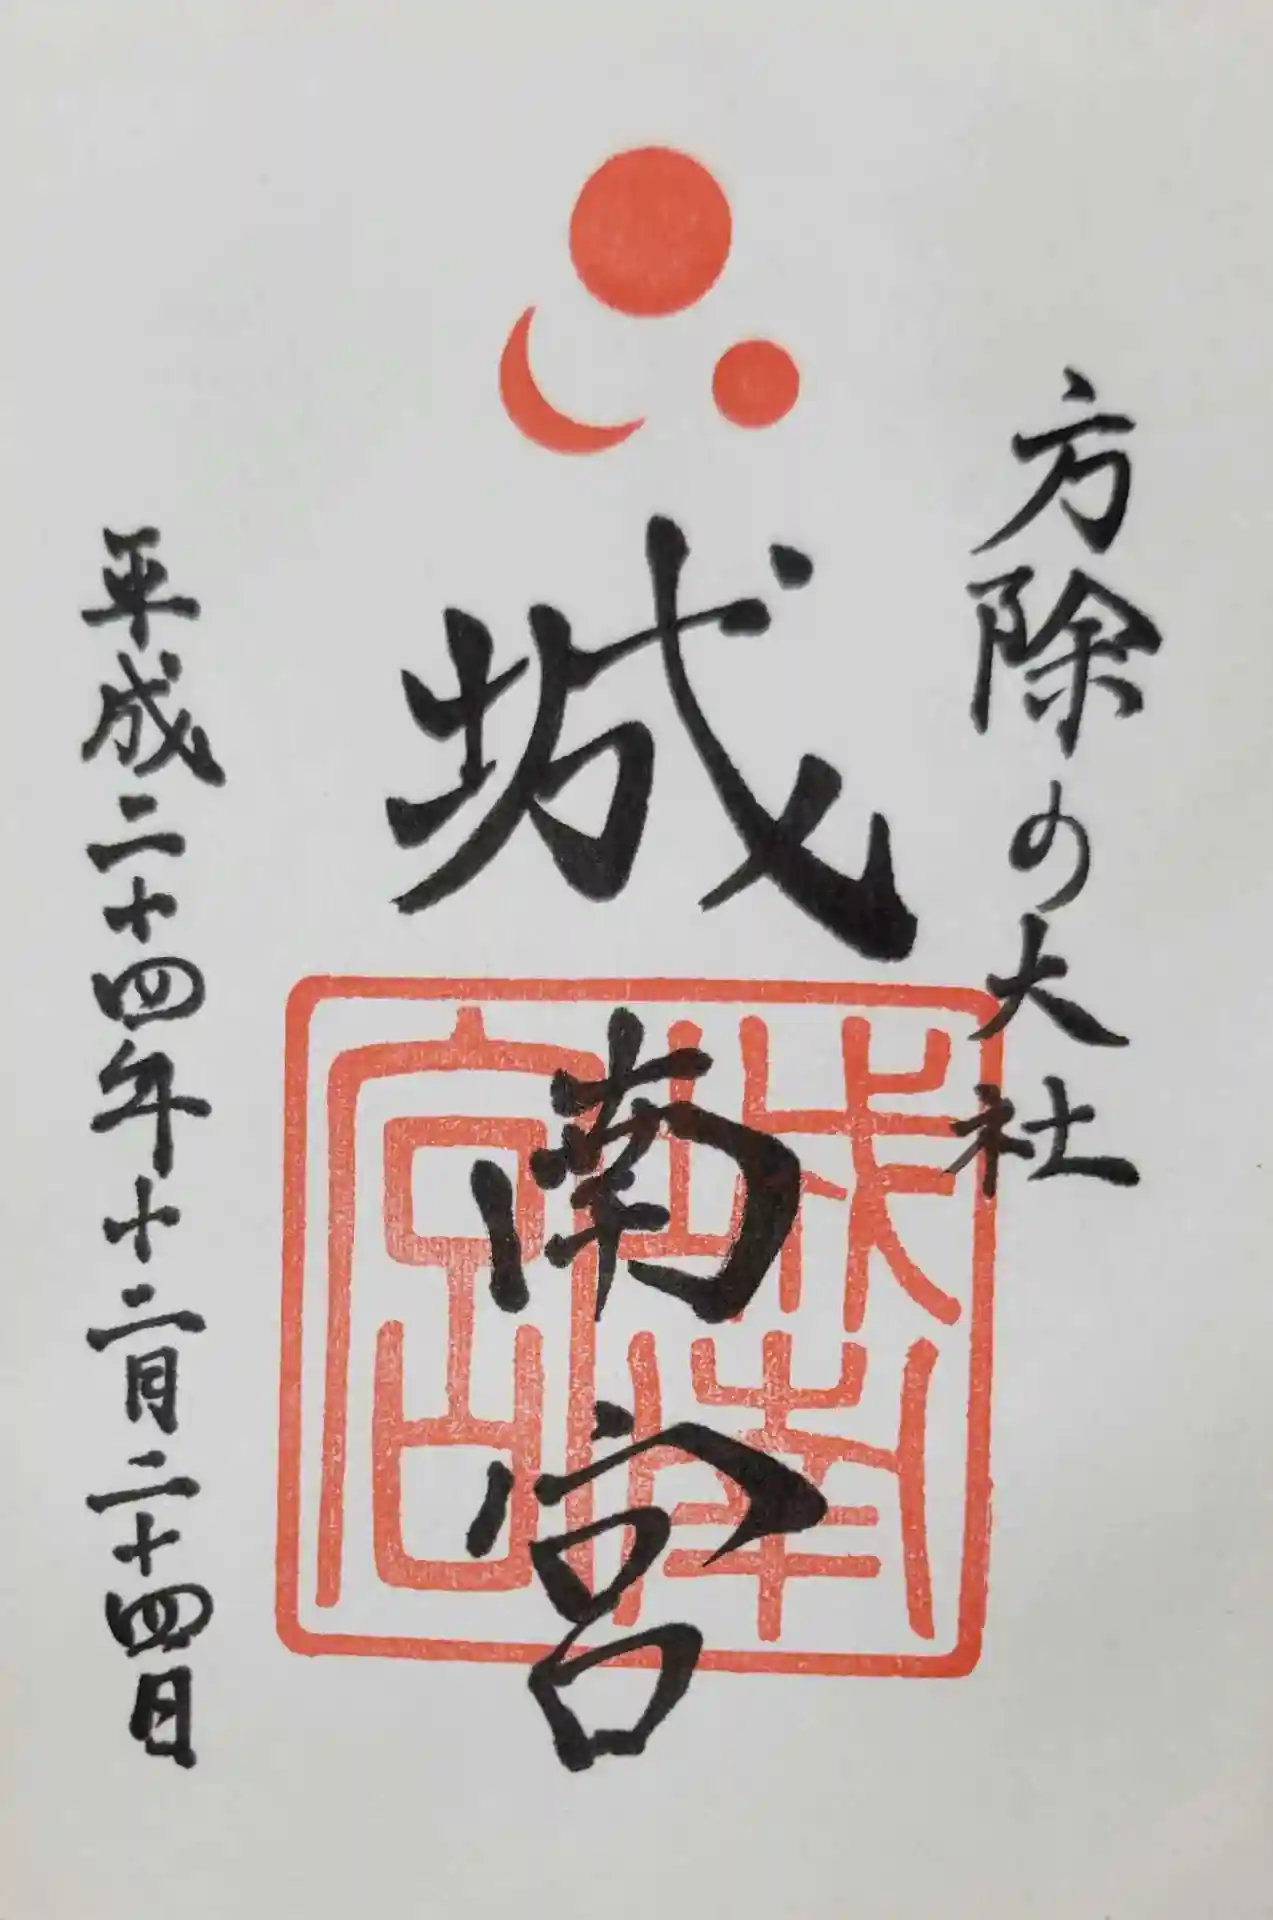 方除の大社
城南宮
平成二十四年十二月二十四日
城南宮